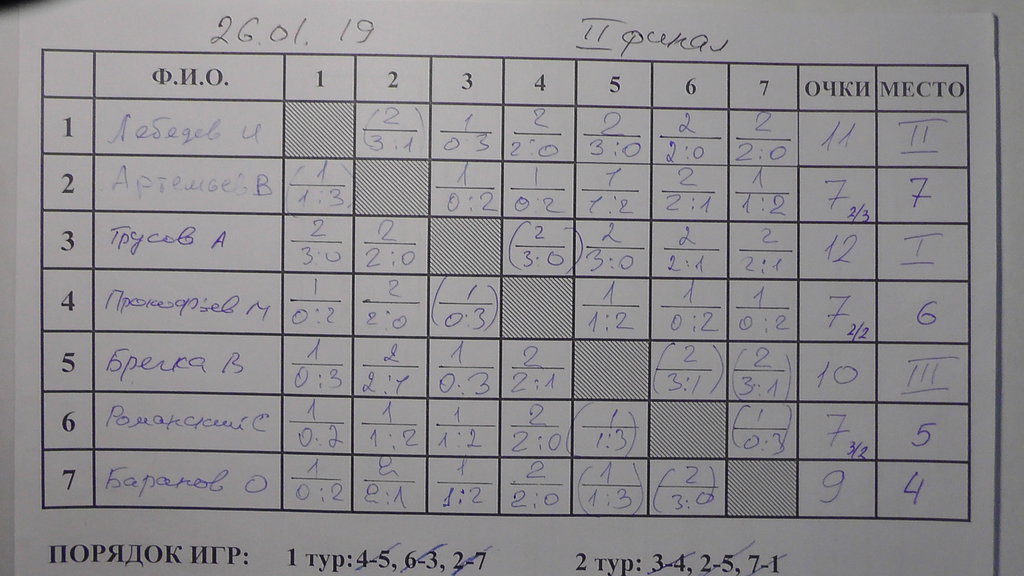 26.01.19 II финал
Ф.И.О. 1 2 3 4 5 6 7 ОЧКИ МЕСТО
1 Лебедев И (2/3:1) 1/0:3 2/2:0 2/3:0 2/2:0 2/2:0 11 II
2 Артемьев В (1/1:3) 1/0:2 1/0:2 1/1:2 2/2:1 1/1:2 7 2/3 7
3 Трусов А 2/3:0 2/2:0 (2/3:0) 2/3:0 2/2:1 2/2:1 12 I
4 Прокофьев М 1/0:2 2/2:0 (1/0:3) 1/1:2 1/0:2 1/0:2 7 2/2 6
5 Брегка В 1/0:3 2/2:1 1/0:3 2/2:1 (2/3:1) (2/3:1) 10 III
6 Романский С 1/0:2 1/1:2 1/1:2 2/2:0 (1/1:3) (1/0:3) 7 3/2 5
7 Баранов О 1/0:2 2/2:1 1/1:2 2/2:0 (1/1:3) (2/3:0) 9 4
ПОРЯДОК ИГР: 1 тур: 4-5, 6-3, 2-7 2 тур: 3-4, 2-5, 7-1